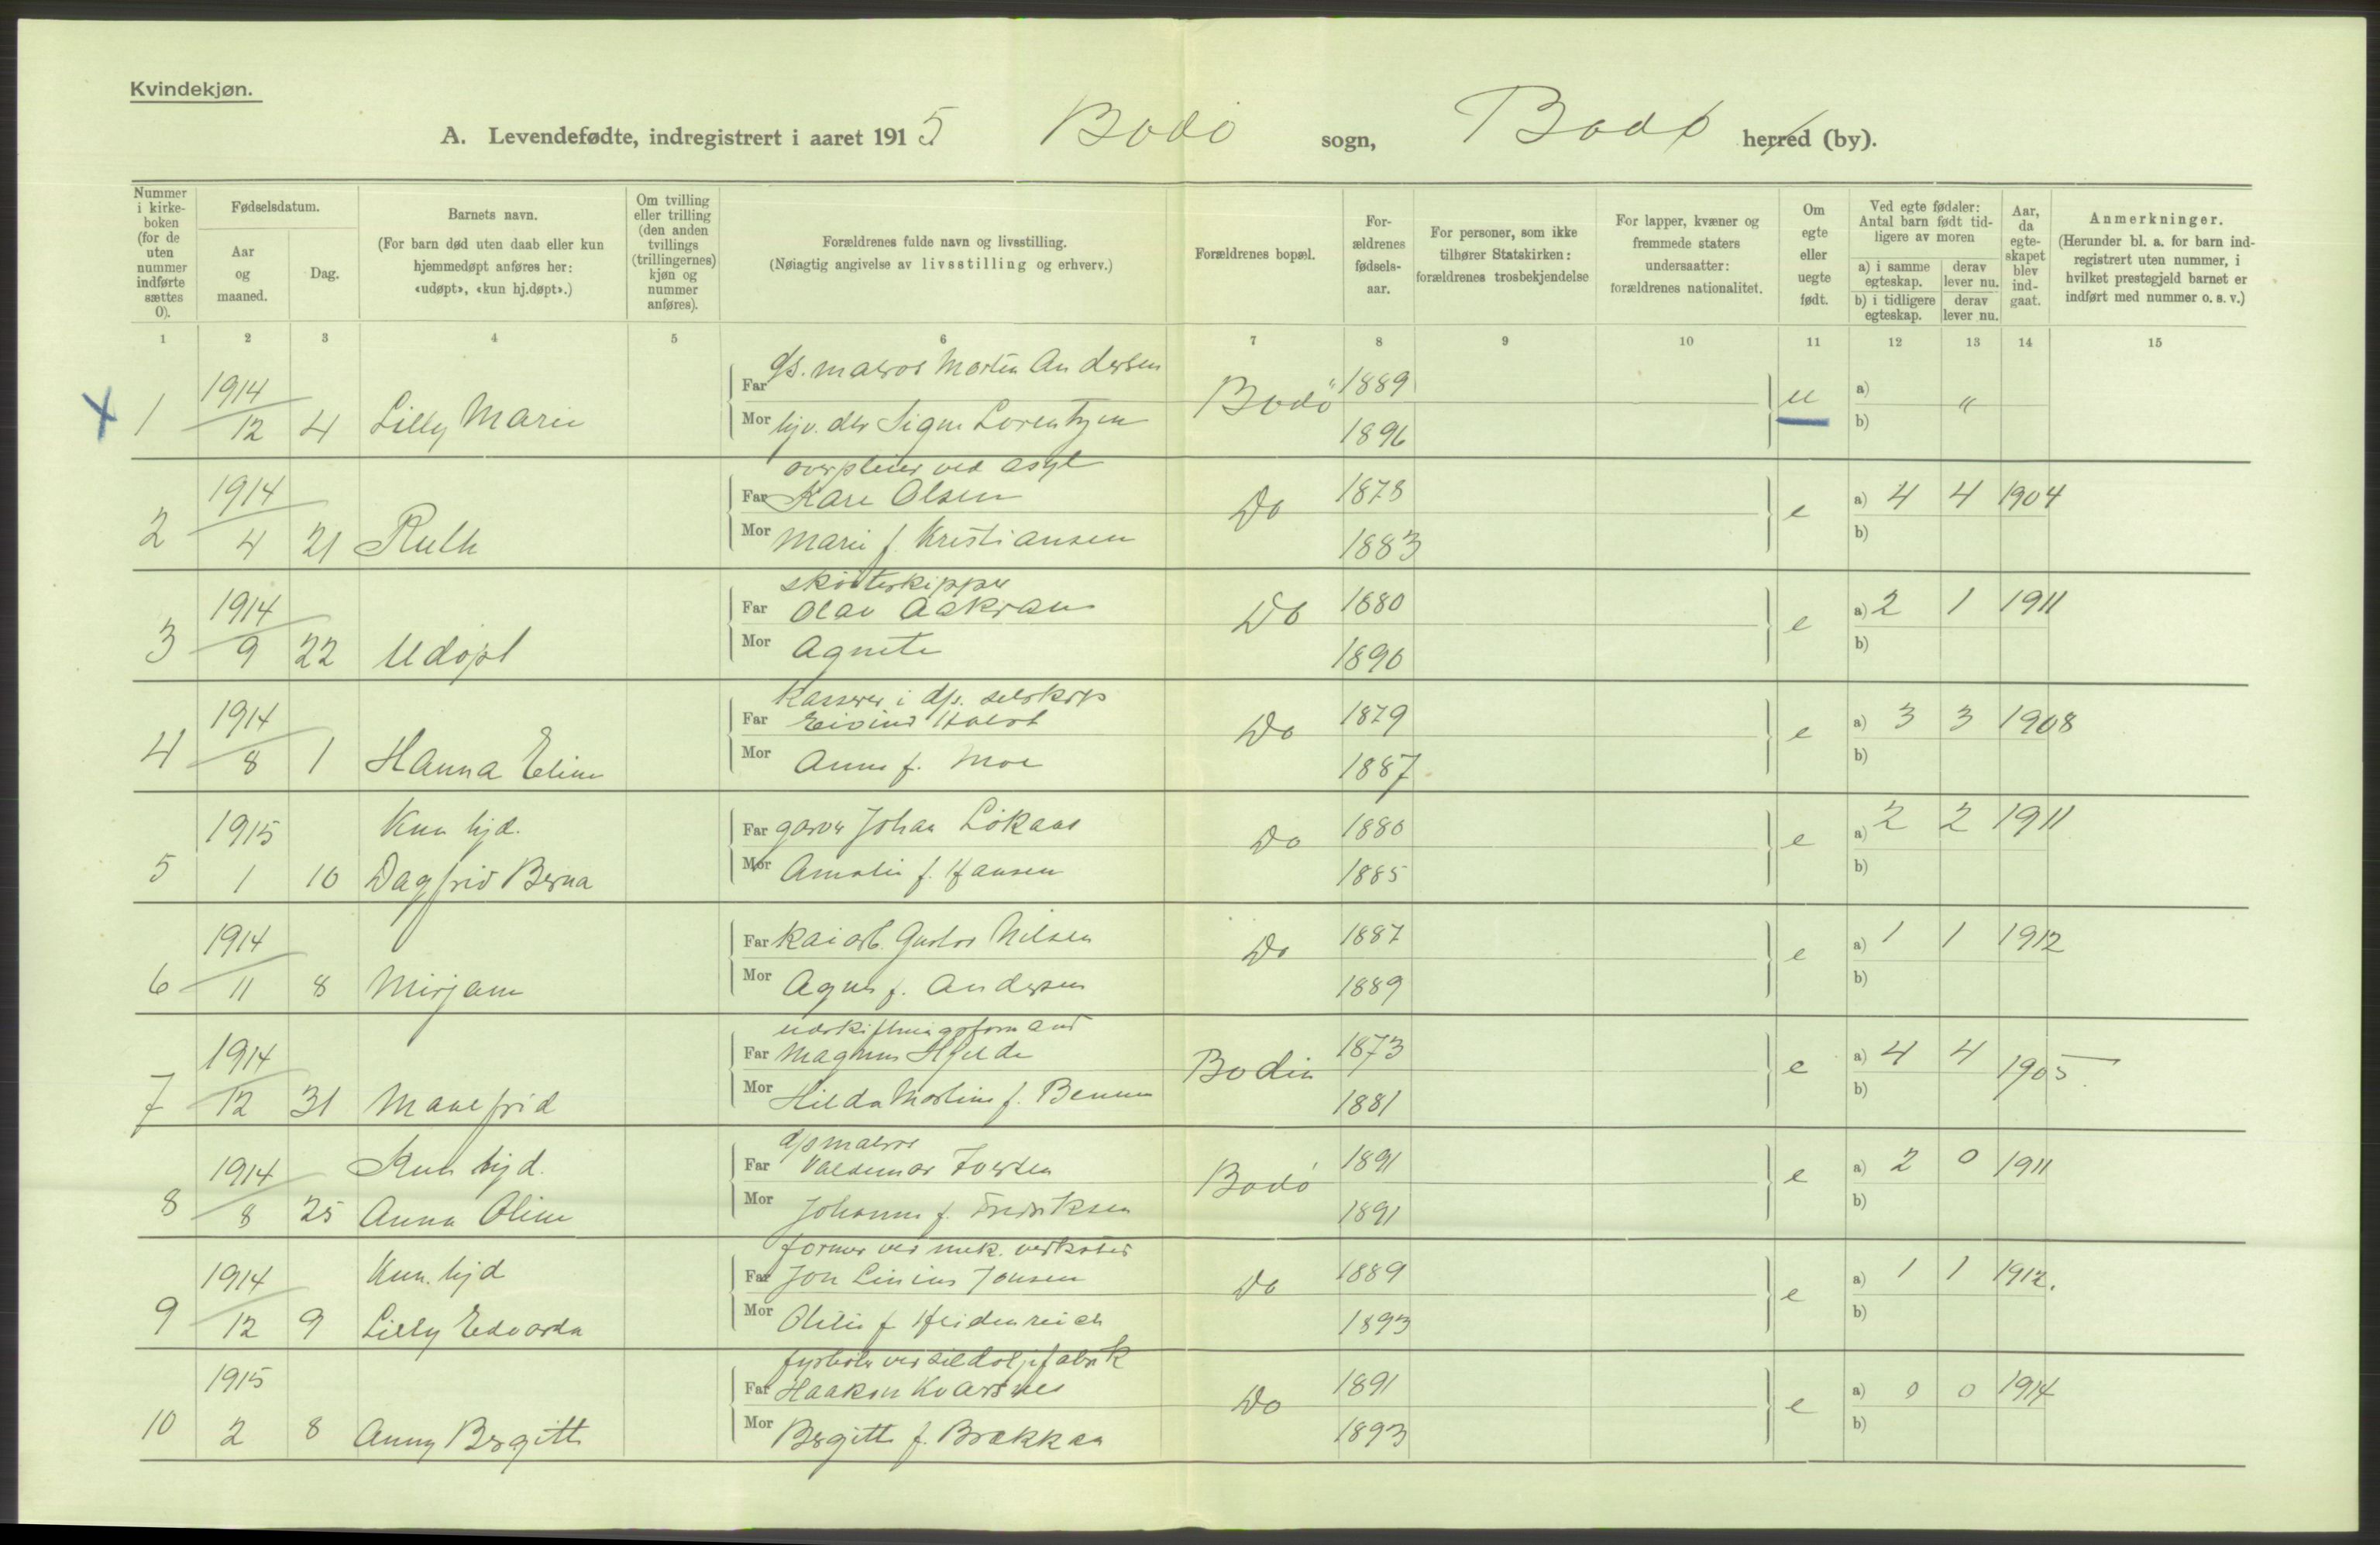 Kvindekjøn.
A. Levendefødte, indregistrert i aaret 1915 Bodø sogn, Bodø herred (by).
Nummer i kirke-boken (for de uten nummer indførte sættes 0).
Fødselsdatum.
Aar og maaned.
Dag.
Barnets navn.
(For barn død uten daab eller kun hjemmedøpt anføres her: «udøpt», «kun hj.døpt».)
Om tvilling eller trilling (den anden tvillings (trillingernes) kjøn og nummer anføres).
Forældrenes fulde navn og livsstilling.
(Nøiagtig angivelse av livsstilling og erhverv.)
Forældrenes bopæl.
For-ældrenes fødsels-aar.
For personer, som ikke tilhører Statskirken: forældrenes trosbekjendelse
For lapper, kvæner og fremmede staters undersaatter: forældrenes nationalitet.
Om egte eller uegte født.
Ved egte fødsler: Antal barn født tid-ligere av moren
a) i samme egteskap. derav lever nu.
b) i tidligere egteskap. derav lever nu.
Aar, da egte-skapet blev ind-gaat.
Anmerkninger.
(Herunder bl. a. for barn ind-registrert uten nummer, i hvilket prestegjeld barnet er indført med nummer o. s. v.)
1 2 3 4 5 6 7 8 9 10 11 12 13 14 15
X 1 1914 12 4 Lilly Marie
Far ds. matros Morten Andersen Bodø 1889 u a) "
Mor hjv. dtr Signe Lorentzen 1896 b)
2 1914 4 21 Ruth
overpleier ved asyl
Far Kare Olsen Do 1878 e a) 4 4 1904
Mor Marie f. Kristiansen 1883 b)
3 1914 9 22 Udøpt
skøiteskipper
Far Olav Aakran Do 1880 e a) 2 1 1911
Mor Agnete 1890 b)
4 1914 8 1 Hanna Eline
Kasserer i d/s. selskap
Far Eivind Do 1879 e a) 3 3 1908
Mor Anna f. Moe 1887 b)
5 1915 1 10 Kun hjd.
Dagfrid Berna
Far garver Johan Løkaas Do 1880 e a) 2 2 1911
Mor Amalie f. Hansen 1885 b)
6 1914 11 8 Mirjam
Far Kaiarb. Gustav Nilsen Do 1887 e a) 1 1 1912
Mor Agnes f. Andersen 1889 b)
7 1914 12 31 Manefrid
udskiftningsformand
Far Magnus Hjelde Bodin 1873 e a) 4 4 1905
Mor Hilda Martine f. 1881 b)
8 1914 8 25 Kun hjd.
Anna Oline
d/s matros
Far Valdemar Iversen Bodø 1891 e a) 2 0 1911
Mor Johanne f. Fredriksen 1891 b)
9 1914 12 9 Kun. hjd
Lilly Edvarda
former ved mek. verksted
Far Jon Linius Jonsen Do 1889 e a) 1 1 1912.
Mor Otilie f Heidenreich 1893 b)
10 1915 2 8 Anny Bergitte
fyrbøter ved sildoljefabrik
Far Haakon Kvarsnes Do 1891 e a) 0 0 1914
Mor Bergitte f. Brækkan 1893 b)